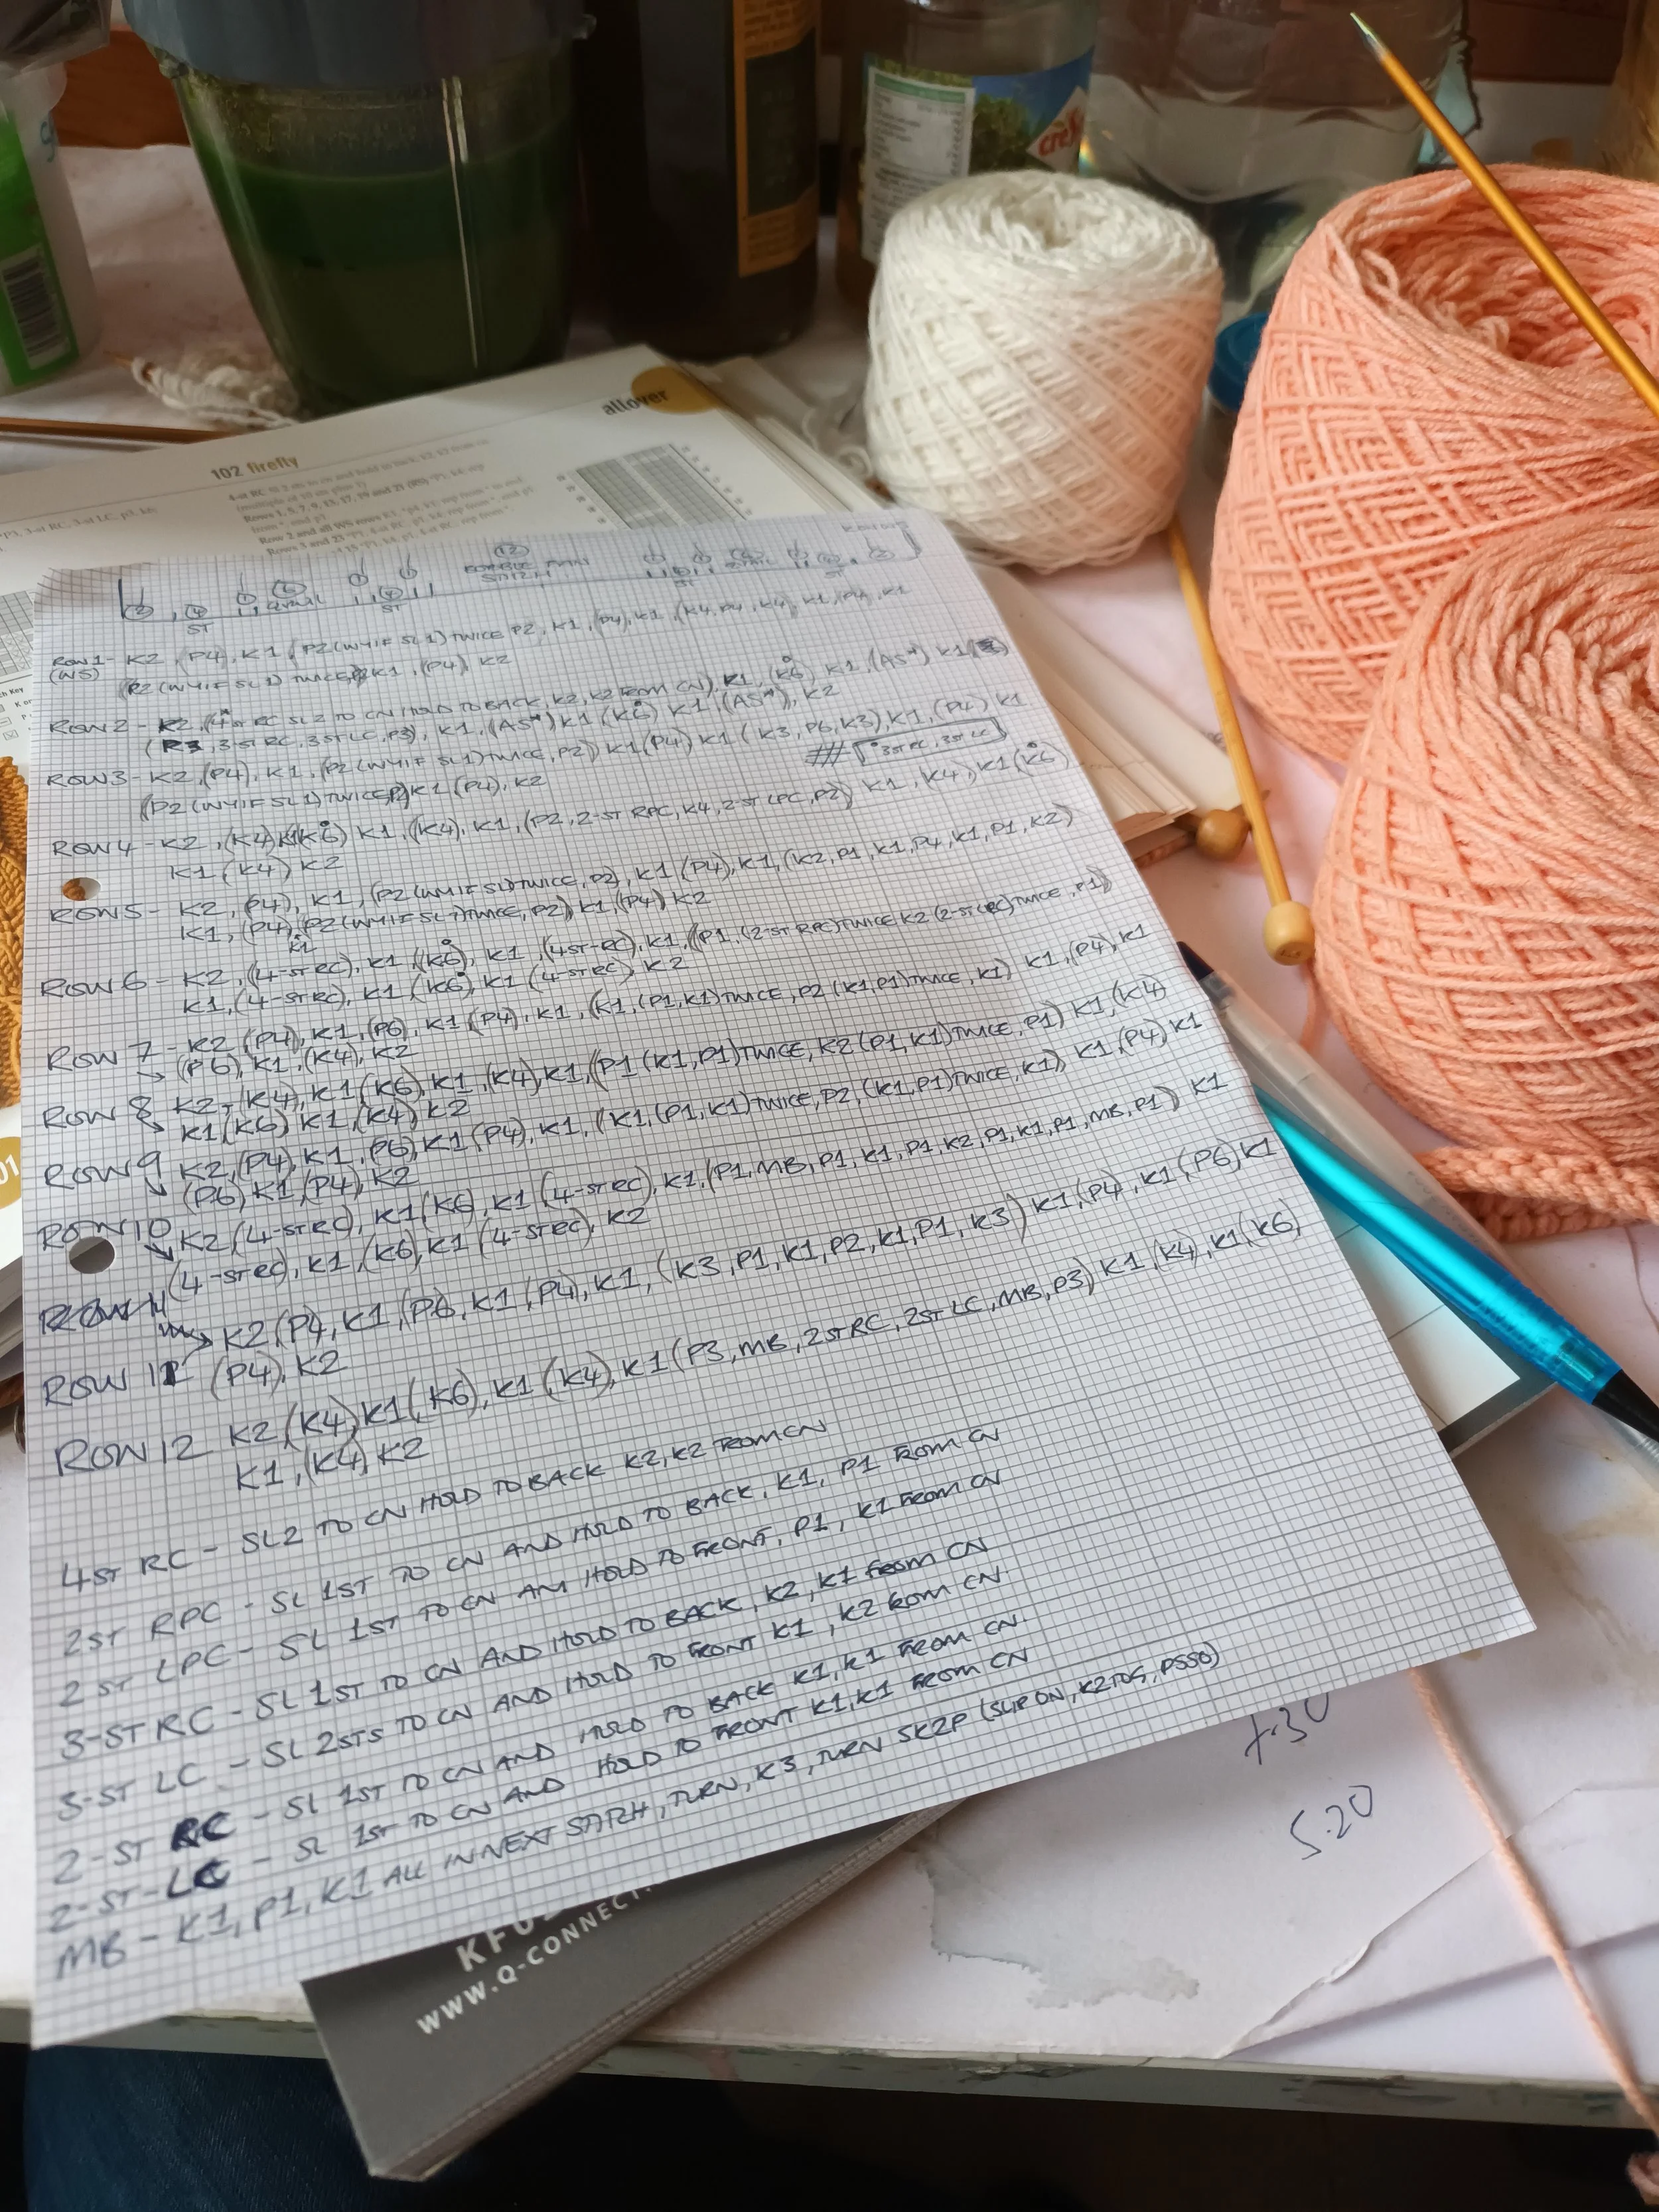 cresp
allover
102 firefly
4-st RC Sl 2 sts to cn and hold to back, k2, k2 from cn
(multiple of 10 sts plus 1)
Rows 1, 5, 7, 9,
Row 2 and all WS rows K1, *p4, k1; rep from * to end
*P3, 3-st RC, 3-st LC, p3, k6;
ROW 1 - K2, (P4), K1, (P2 (WYIF SL1) TWICE P2, K1, (P4), K1, (K4, P4, K4), K1, (P4), K1
(WS) (P2 (WYIF SL1) TWICE, K1, (P4), K2
ROW 2 - K2, (4ST RC SL2 TO CN HOLD TO BACK, K2, K2 FROM CN), K1, (K6) K1, (AS*) K1
(P3, 3 ST RC, 3 ST LC, P3), K1, (AS*) K1 (K6) K1, (AS*), K2
ROW 3 - K2, (P4), K1, (P2 (WYIF SL1) TWICE, P2)) K1 (P4) K1 (K3, P6, K3), K1, (P4) K1
(P2 (WYIF SL1) TWICE, K1 (P4), K2
3 ST RC, 3 ST LC
ROW 4 - K2, (K4), K1 (K6) K1, (K4), K1, (P2, 2-ST RPC, K4, 2-ST LPC, P2) K1, K4), K1 (K6)
K1 (K4) K2
ROW 5 - K2, (P4), K1, (P2 (WYIF SL1) TWICE, P2), K1 (P4), K1, (K2, P1, K1, P4, K1, P1, K2)
K1, (P4), P2 (WYIF SL1) TWICE, P2) K1, (P4) K2
K1
ROW 6 - K2, (4-ST RC), K1, (K6), K1, (4ST-RC), K1, ((P1, (2-ST RPC) TWICE K2 (2-ST LPC) TWICE, P1))
K1, (4-ST RC), K1 (K6) K1 (4-ST RC), K2
ROW 7 - K2 (P4), K1, (P6), K1 (P4), K1, (K1, (P1, K1) TWICE, P2 (K1, P1) TWICE, K1) K1, (P4), K1
(P6), K1, (K4), K2
ROW 8 K2, (K4), K1 (K6), K1, (K4), K1, ((P1 (K1, P1) TWICE, K2 (P1, K1) TWICE, P1) K1, (K4
K1 (K6) K1, (K4) K2
ROW 9 K2, (P4), K1, P6), K1 (P4), K1, (K1, (P1, K1) TWICE, P2, (K1, P1) TWICE, K1)) K1, (P4) K1
(P6) K1, (P4), K2
ROW 10 K2 (4-ST RC), K1 (K6), K1 (4-ST RC), K1, (P1, MB, P1, K1, P1, K2, P1, K1, P1, MB, P1) K1
(4-ST RC), K1, (K6), K1 (4-ST RC), K2
K2 (P4, K1, (P6, K1, (P4), K1, (K3, P1, K1, P2, K1, P1, K3) K1, (P4), K1 (P6) K1
ROW 11 (P4), K2
ROW 12 K2 (K4) K1 (K6), K1 (K4), K1 (P3, MB, 2 ST RC, 2ST LC, MB, P3) K1, (K4), K1 (K6),
K1, (K4) K2
4 ST RC - SL2 TO CN HOLD TO BACK K2, K2 FROM CN
2ST RPC - SL 1ST TO CN AND HOLD TO BACK, K1, P1 FROM CN
2 ST LPC - SL 1ST TO CN AM HOLD TO FRONT, P1, K1 FROM CN
3-ST RC - SL 1ST TO CN AND HOLD TO BACK, K2, K1 FROM CN
3-ST LC - SL 2STS TO CN AND HOLD TO FRONT K1, K2 FROM CN
2-ST RC - SL 1ST TO CN AND HOLD TO BACK K1, K1 FROM CN
2-ST-LC - SL 1ST TO CN AND HOLD TO FRONT K1, K1 FROM CN
MB - K1, P1, K1 ALL IN NEXT STITCH, TURN, K3, TURN SK2P (SLIP ON, K2TOG, PSSO)
7.30
5.20
WWW.Q-CONNECT